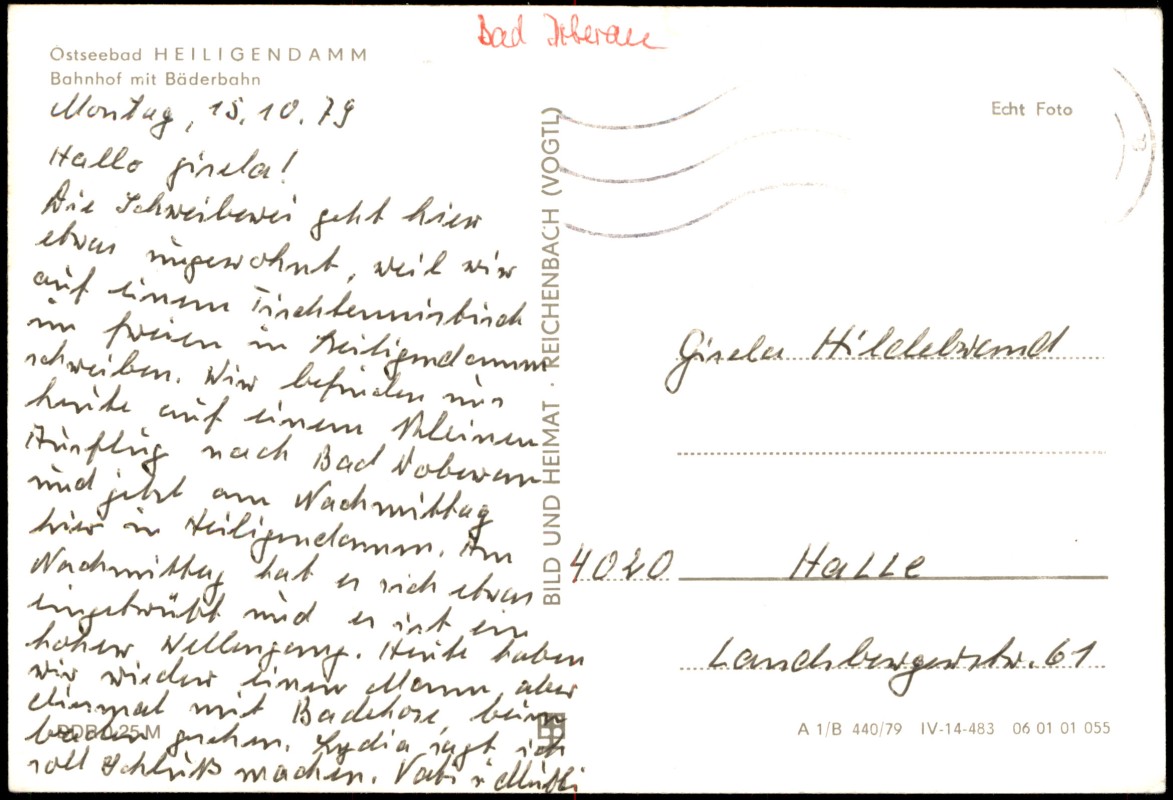 Bad Doberan
Ostseebad HEILIGENDAMM
Bahnhof mit Bäderbahn
Echt Foto
Montag, 15.10.79
Hallo Gisela!
Die Schreiberei geht hier
etwas ungewohnt, weil wir
auf einem Tischtennistisch
im freien in Heiligendamm
schreiben. Wir befinden uns
heute auf einem kleinen
Ausflug nach Bad Doberan
und jetzt am Nachmittag
hier in Heiligendamm. Am
Nachmittag hat es sich etwas
eingetrübt und es ist ein
hoher Wellengang. Heute haben
wir wieder einen Mann, aber
diesmal mit Badehose, beim
baden gesehen. Lydia sagt ich
soll Schluß machen. Vati u Mutti
BILD UND HEIMAT · REICHENBACH (VOGTL)
Gisela Hildebrand
4020 Halle
Landsbergerstr. 61
A 1/B 440/79 IV-14-483 06 01 01 055